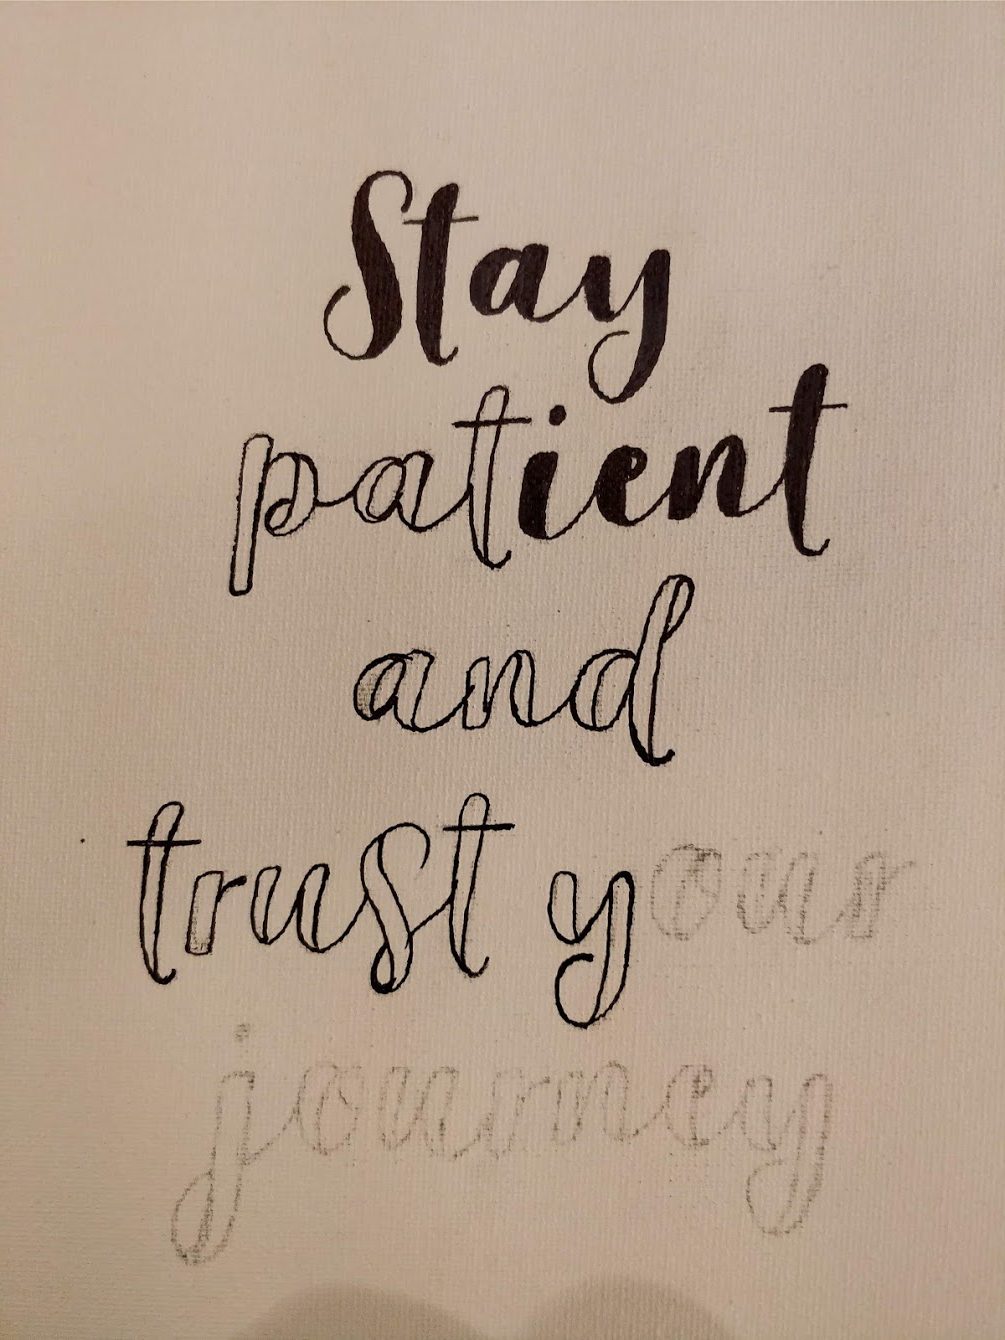 Stay
patient
and
trust your
journey